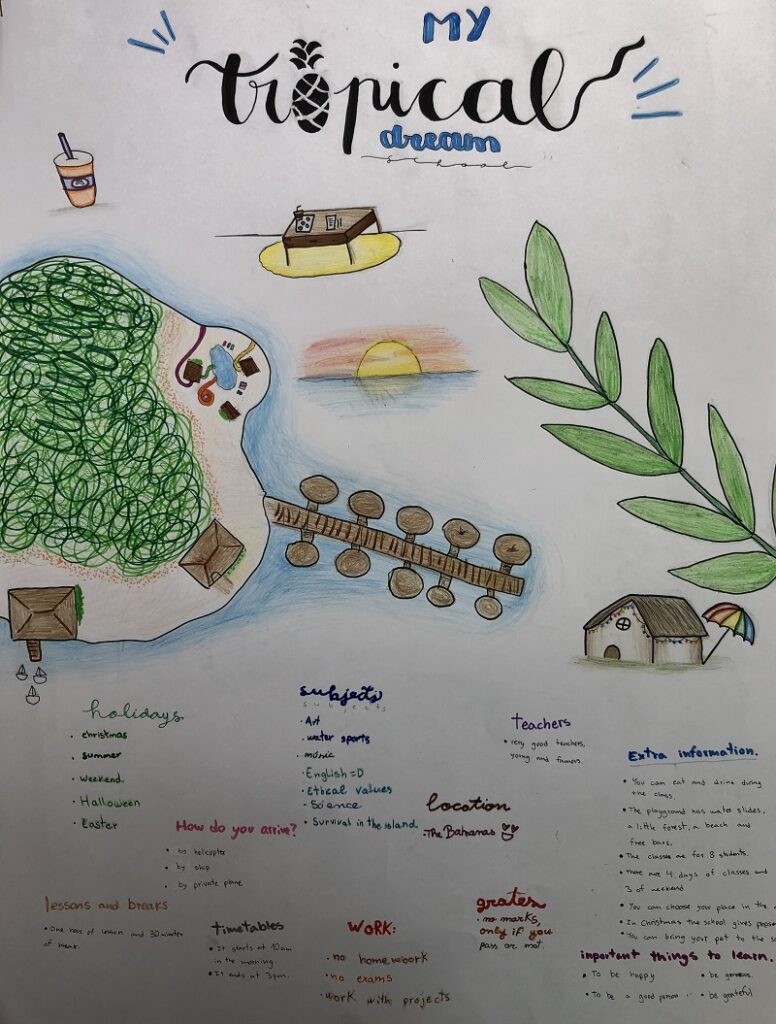 MY
tropical
dream
school
holidays
• christmas
• summer
• weekend.
• Halloween
• Easter
subjects
subjects
• Art
• water sports
• music
• English =D
• Ethical values
• Science
• Survival in the island.
Teachers
• very good teachers,
young and famous.
location
• The Bahamas
How do you arrive?
• by helicopter
• by ship
• by private plane
Extra information.
• You can eat and drink during
the class.
• The playground has water slides,
a little forest, a beach and
free bars.
• The classes are for 8 students.
• There are 4 days of classes and
3 of weekend
• You can choose your place in the
• In Christmas the school gives
• You can bring your pet to the
lessons and breaks
• One hour of lesson and 30 minutes
of break.
Timetables
• It starts at 10am
in the morning.
• It ends at 3pm.
WORK:
• no homework
• no exams
• work with projects
grates
• no marks,
only if you
pass or not.
important things to learn.
• To be happy
• To be a good person
• be generous.
• be grateful